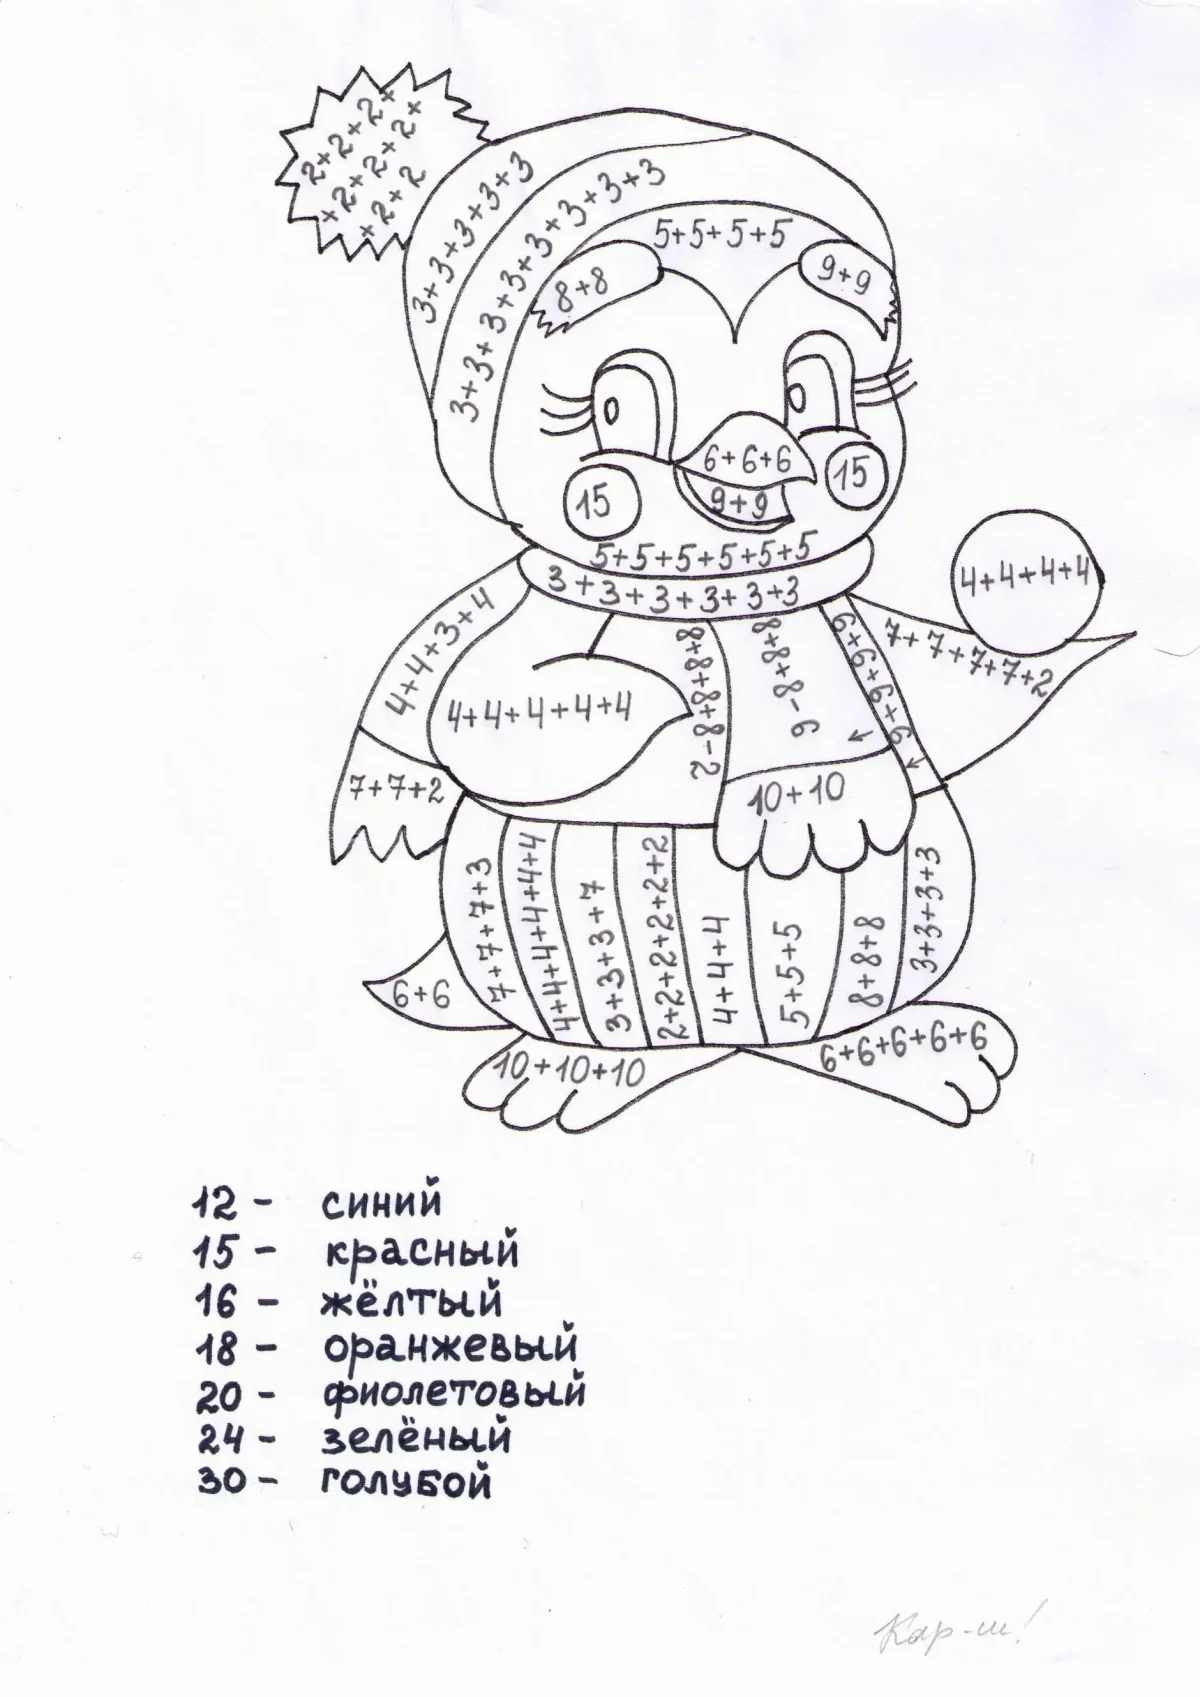 2+2+2+
+2+2+2+
+2+2
3+3+3+3+3
3+3+3+3+3+3+3+3
5+5+5+5
8+8
9+9
6+6+6
9+9
15
15
5+5+5+5+5+5
3+3+3+3+3+3
4+4+4+4
4+4+3+4
7+7+7+7+2
8+8+8+8-2
8+8+8-6
4+4+4+4+4
7+7+2
10+10
7+7+7+3
4+4+4+4+4+4
3+3+3+7
2+2+2+2+2+2
4+4+4
5+5+5
8+8+8
3+3+3+3
6+6
10+10+10
6+6+6+6+6
12 - синий
15 - красный
16 - жёлтый
18 - оранжевый
20 - фиолетовый
24 - зелёный
30 - голубой
Кар-ш!